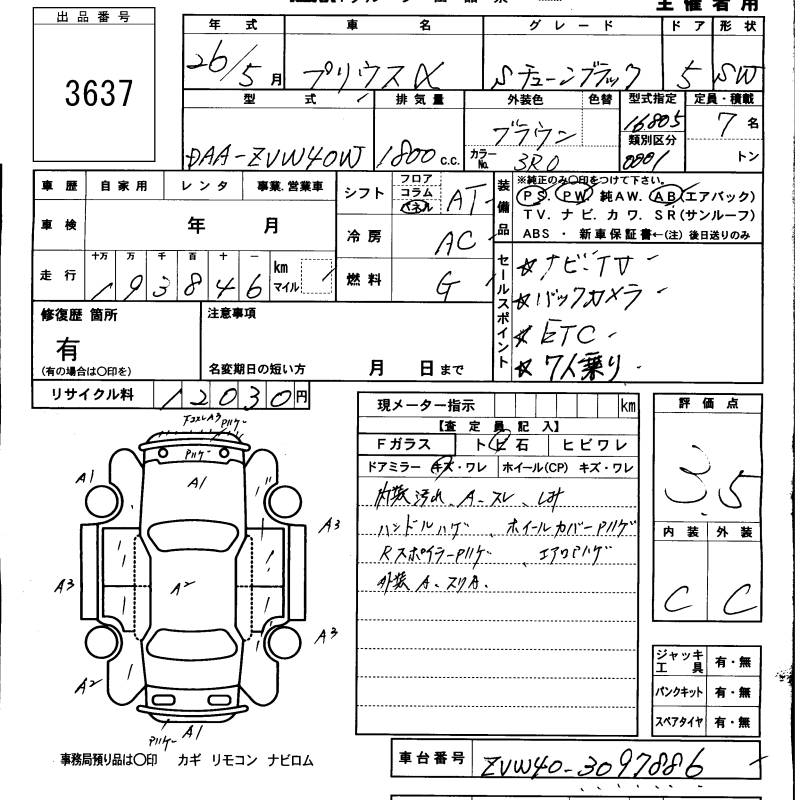 主催者用
出品番号
3637
年式 車名 グレード ドア 形状
26/5月 プリウスα Sチューンブラック 5 SW
型式 排気量 外装色 色替 型式指定 定員・積載
DAA-ZVW40W 1800c.c. ブラウン 16805 7名
カラーNo. 3R0 類別区分 0001 トン
車歴 自家用 レンタ 事業.営業車
車検 年 月
走行 十万 万 千 百 十 一
193846 km マイル
シフト フロア コラム パネル AT
冷房 AC
燃料 G
装備品
※純正のみ○印をつけて下さい。
PS. PW. 純AW. AB(エアバック)
TV. ナビ. カワ. SR(サンルーフ)
ABS ・ 新車保証書←(注) 後日送りのみ
セールスポイント
☆ナビ・TV
☆バックカメラ
☆ETC
☆7人乗り
修復歴 箇所
有
(有の場合は○印を)
注意事項
名変期日の短い方 月 日まで
リサイクル料 12030円
現メーター指示 km
【査定員記入】
Fガラス トビ石 ヒビワレ
ドアミラー キズ・ワレ ホイール(CP) キズ・ワレ
内装汚れ、A、スレ、しみ
ハンドルハゲ、ホイールカバーPハゲ
RスポイラーPハゲ エアロPハゲ
外装 A、スリA、
評価点
3.5
内装 外装
C C
ジャッキ工具 有・無
パンクキット 有・無
スペアタイヤ 有・無
A3 Pハゲ
Pハゲ
A1
A1
A3
A3
A2
A3
A2
A1
Pハゲ
事務局預り品は○印 カギ リモコン ナビロム
車台番号 ZVW40-3097886